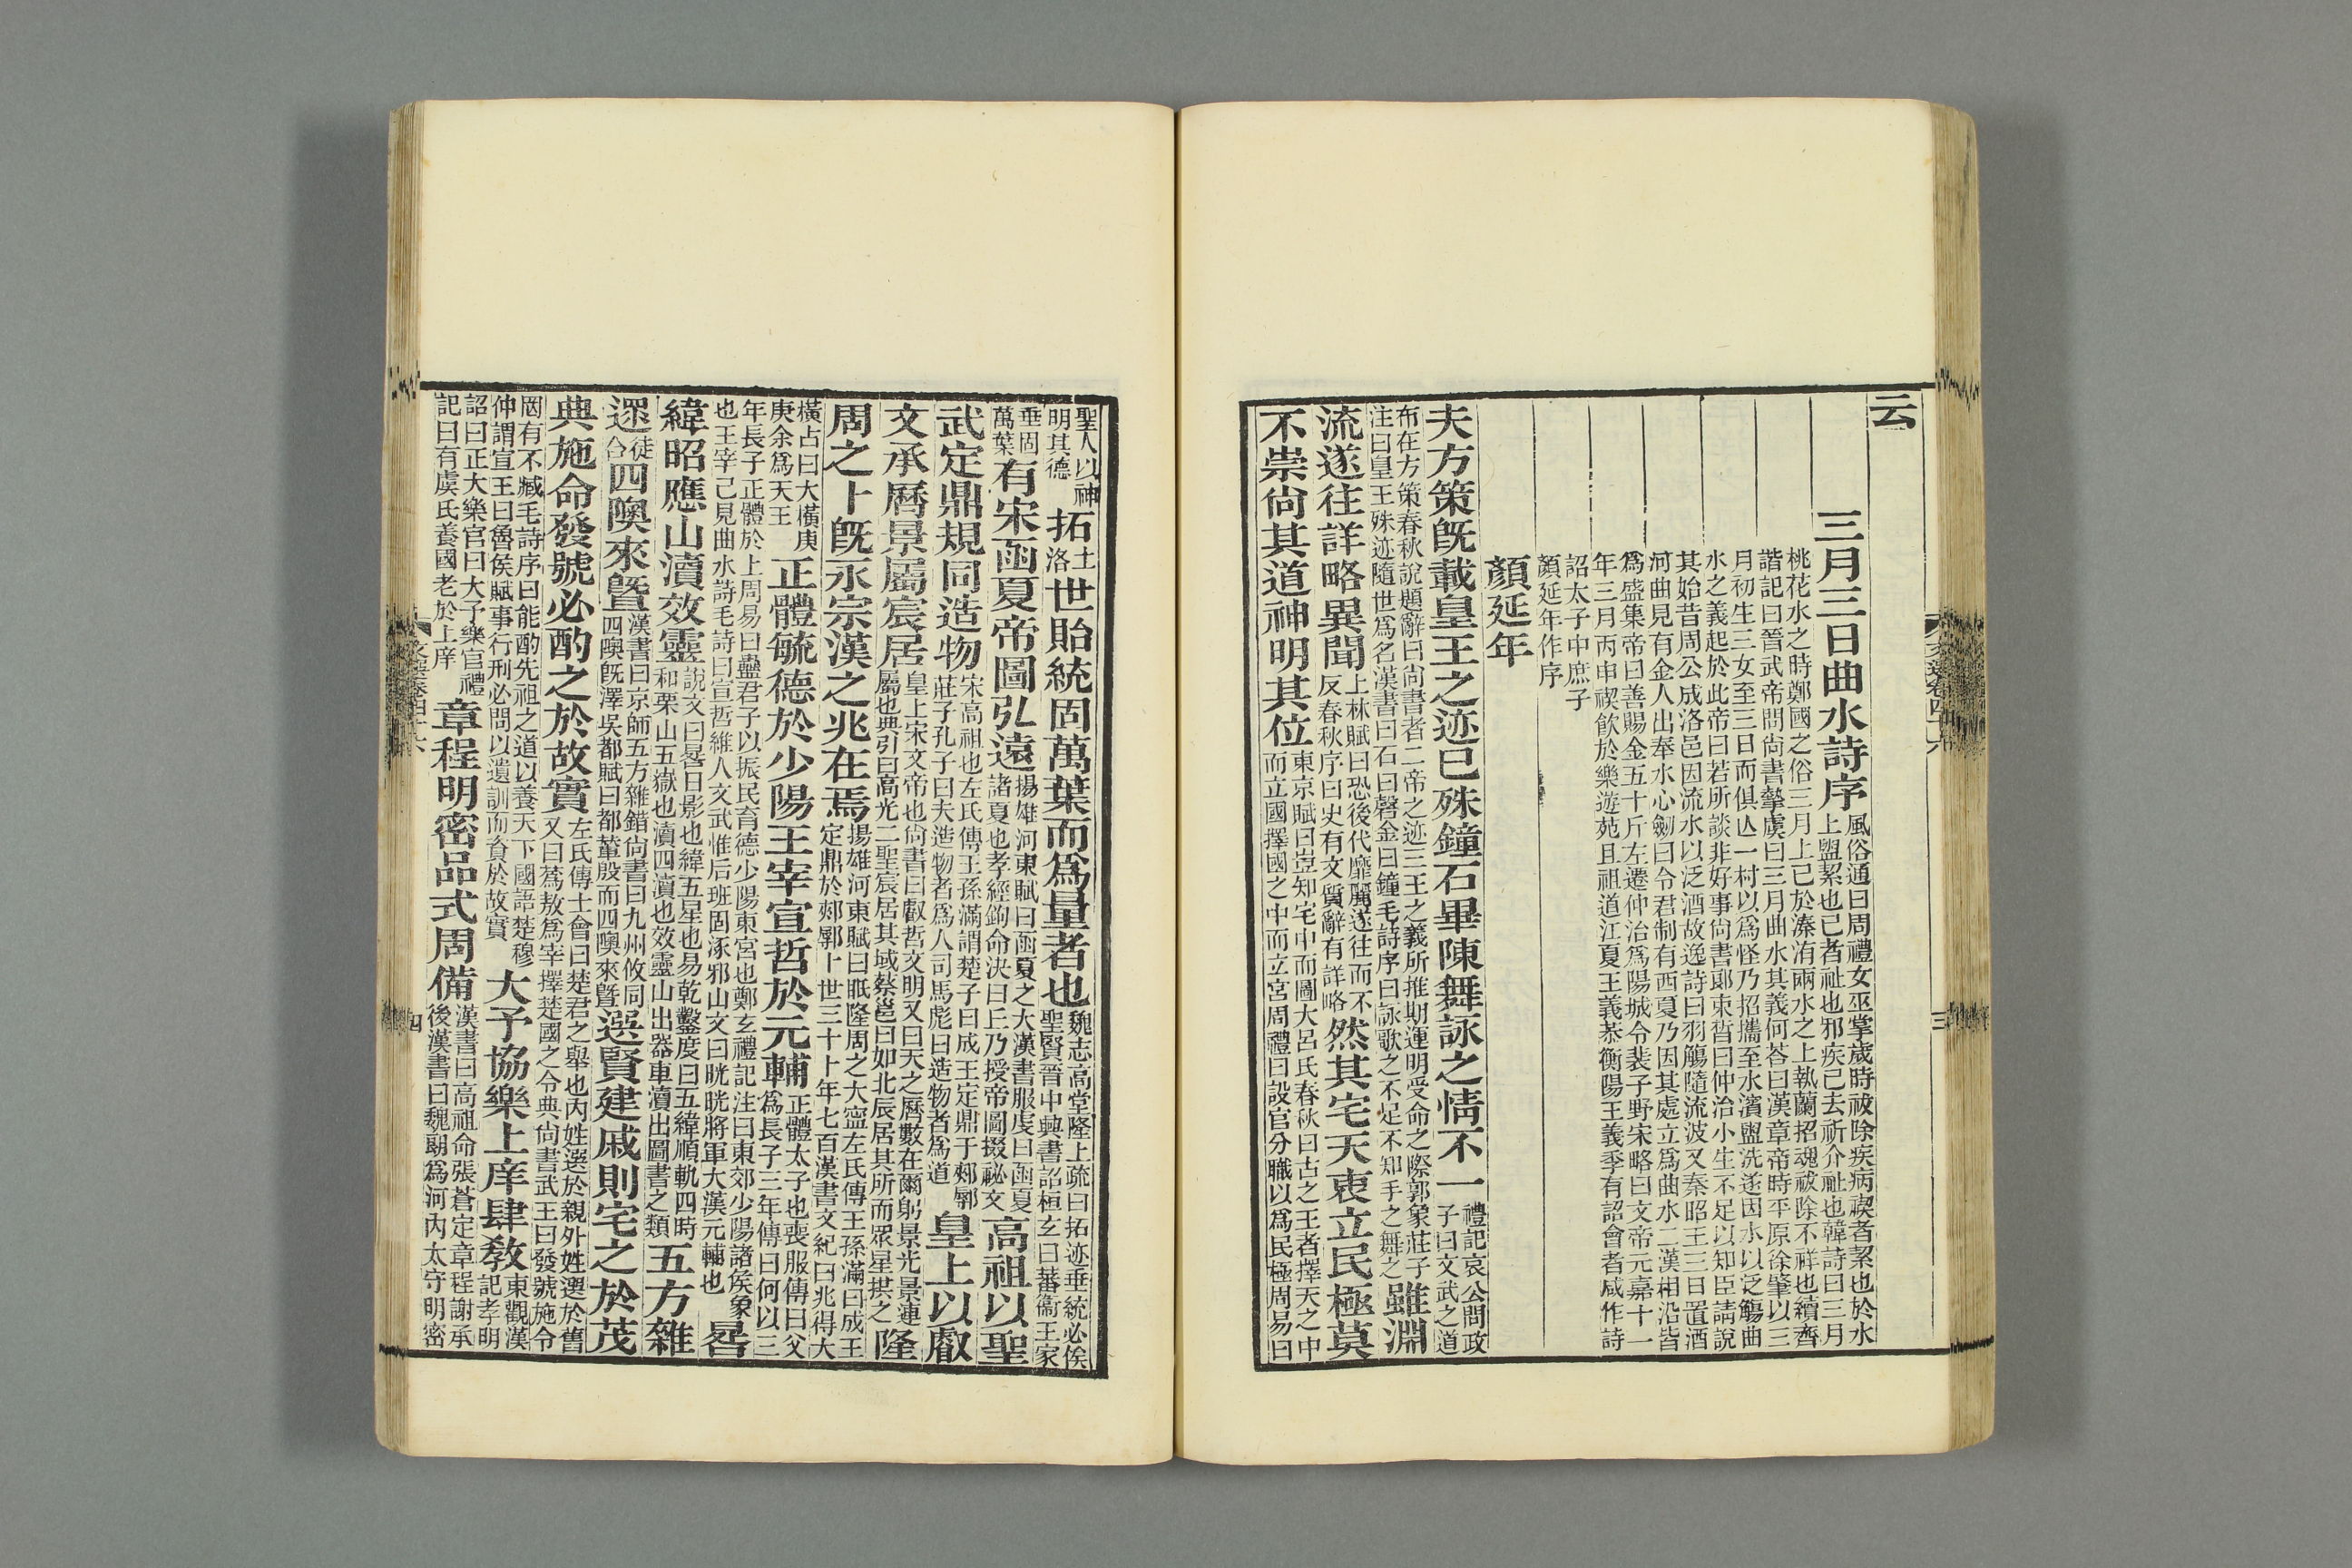 云
三月三日曲水詩序風俗通曰周禮女巫掌歲時祓除疾病禊者絜也於水
上盥絜也巳者祉也邪疾已去祈介祉也韓詩曰三月
桃花水之時鄭國之俗三月上巳於溱洧兩水之上執蘭招魂祓除不祥也續齊
諧記曰晉武帝問尚書摯虞曰三月曲水其義何荅曰漢章帝時平原徐肇以三
月初生三女至三日而俱亾一村以爲怪乃招攜至水濱盥洗遂因水以泛觴曲
水之義起於此帝曰若所談非好事尚書郞束晳曰仲治小生不足以知臣請說
其始昔周公成洛邑因流水以泛酒故逸詩曰羽觴隨流波又秦昭王三日置酒
河曲見有金人出奉水心劒曰令君制有西夏乃因其處立爲曲水二漢相沿皆
爲盛集帝曰善賜金五十斤左遷仲治爲陽城令裴子野宋略曰文帝元嘉十一
年三月丙申禊飮於樂遊苑且祖道江夏王義恭衡陽王義季有詔會者咸作詩
詔太子中庶子
顏延年作序
顏延年
夫方策旣載皇王之迹已殊鐘石畢陳舞詠之情不一禮記哀公問政
子曰文武之道
布在方策春秋說題辭曰尚書者二帝之迹三王之義所推期運明受命之際郭象莊子
注曰皇王殊迹隨世爲名漢書曰石曰磬金曰鐘毛詩序曰詠歌之不足不知手之舞之雖淵
流遂往詳略異聞上林賦曰恐後代靡麗遂往而不
反春秋序曰史有文質辭有詳略然其宅天衷立民極莫
不崇尚其道神明其位東京賦曰豈知宅中而圖大呂氏春秋曰古之王者擇天之中
而立國擇國之中而立宮周禮曰設官分職以爲民極周易曰
文選卷四十六
三
聖人以神
明其德拓土
洛世貽統固萬葉而爲量者也魏志高堂隆上疏曰拓迹垂統必俟
聖賢晉中興書詔桓玄曰蕃衞王家
垂固
萬葉有宋函夏帝圖弘遠揚雄河東賦曰函夏之大漢書服虔曰函夏
諸夏也孝經鉤命決曰丘乃授帝圖掇祕文高祖以聖
武定鼎規同造物宋高祖也左氏傳王孫滿謂楚子曰成王定鼎于郟鄏
莊子孔子曰夫造物者爲人司馬彪曰造物者爲道皇上以叡
文承曆景屬宸居皇上宋文帝也尚書曰叡哲文明又曰天之曆數在爾躬景光景連
屬也典引曰高光二聖宸居其域蔡邕曰如北辰居其所而眾星拱之隆
周之卜旣永宗漢之兆在焉揚雄河東賦曰眽隆周之大寧左氏傳王孫滿曰成王
定鼎於郟鄏卜世三十卜年七百漢書文紀曰兆得大
橫占曰大橫庚
庚余爲天王正體毓德於少陽王宰宣哲於元輔正體太子也喪服傳曰父
爲長子三年傳曰何以三
年長子正體於上周易曰蠱君子以振民育德少陽東宮也鄭玄禮記注曰東郊少陽諸侯象
也王宰已見曲水詩毛詩曰宣哲維人文武惟后班固涿邪山文曰晄晄將軍大漢元輔也晷
緯昭應山瀆效靈說文曰晷日影也緯五星也易乾鑿度曰五緯順軌四時
和栗山五嶽也瀆四瀆也效靈山出器車瀆出圖書之類五方雜
遝徒
合四隩來曁漢書曰京師五方雜錯尚書曰九州攸同
四隩旣澤吳都賦曰都輦殷而四隩來曁選賢建戚則宅之於茂
典施命發號必酌之於故實左氏傳士會曰楚君之舉也內姓選於親外姓選於舊
又曰蒍敖爲宰擇楚國之令典尚書武王曰發號施令
罔有不臧毛詩序曰能酌先祖之道以養天下國語楚穆
仲謂宣王曰魯侯賦事行刑必問以遺訓而資於故實大予協樂上庠肆敎東觀漢
記孝明
詔曰正大樂官曰大予樂官禮
記曰有虞氏養國老於上庠章程明密品式周備漢書曰高祖命張蒼定章程謝承
後漢書曰魏朗爲河內太守明密
文選卷四十六
四